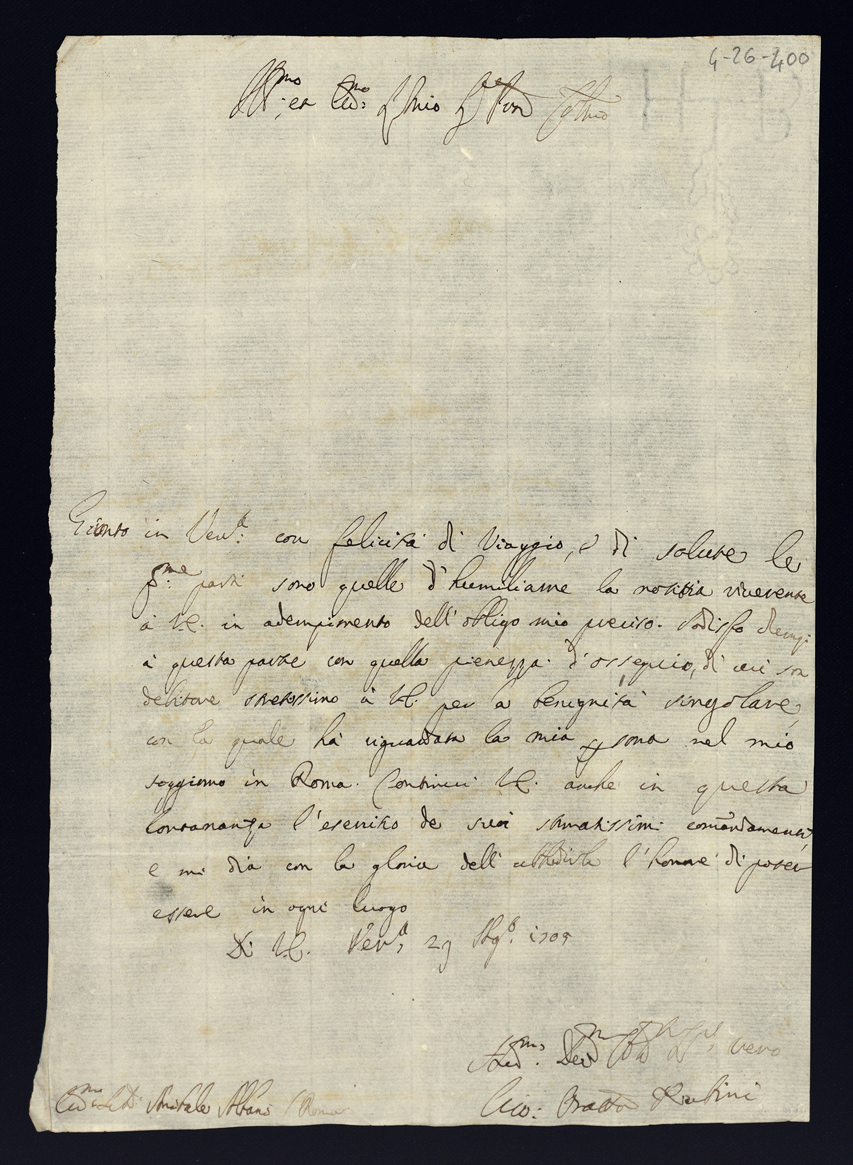 4-26-400
Ill.mo et Ecc.mo
Gionto in Ven.a con felicità di Viaggio, e di salute le
p.me parti sono quelle d'humiliarne la notitia riverente
à V.E. in adempimento dell'obligo mio preciso. Sodisfo
à questa parte con quella pienezza d'ossequio, di cui son
debitore strettissimo à V.E. per la benignità singolare,
con la quale hà riguardata la mia persona nel mio
soggiorno in Roma. Continui V.E. anche in questa
lontananza l'esercitio de suoi stimatissimi comandamenti
e mi dia con la gloria dell'ubbidirla l'honore di poter
essere in ogni luogo
Di V.E. Ven.a 29 1709
vero
Annibale Albani Roma
Rubini